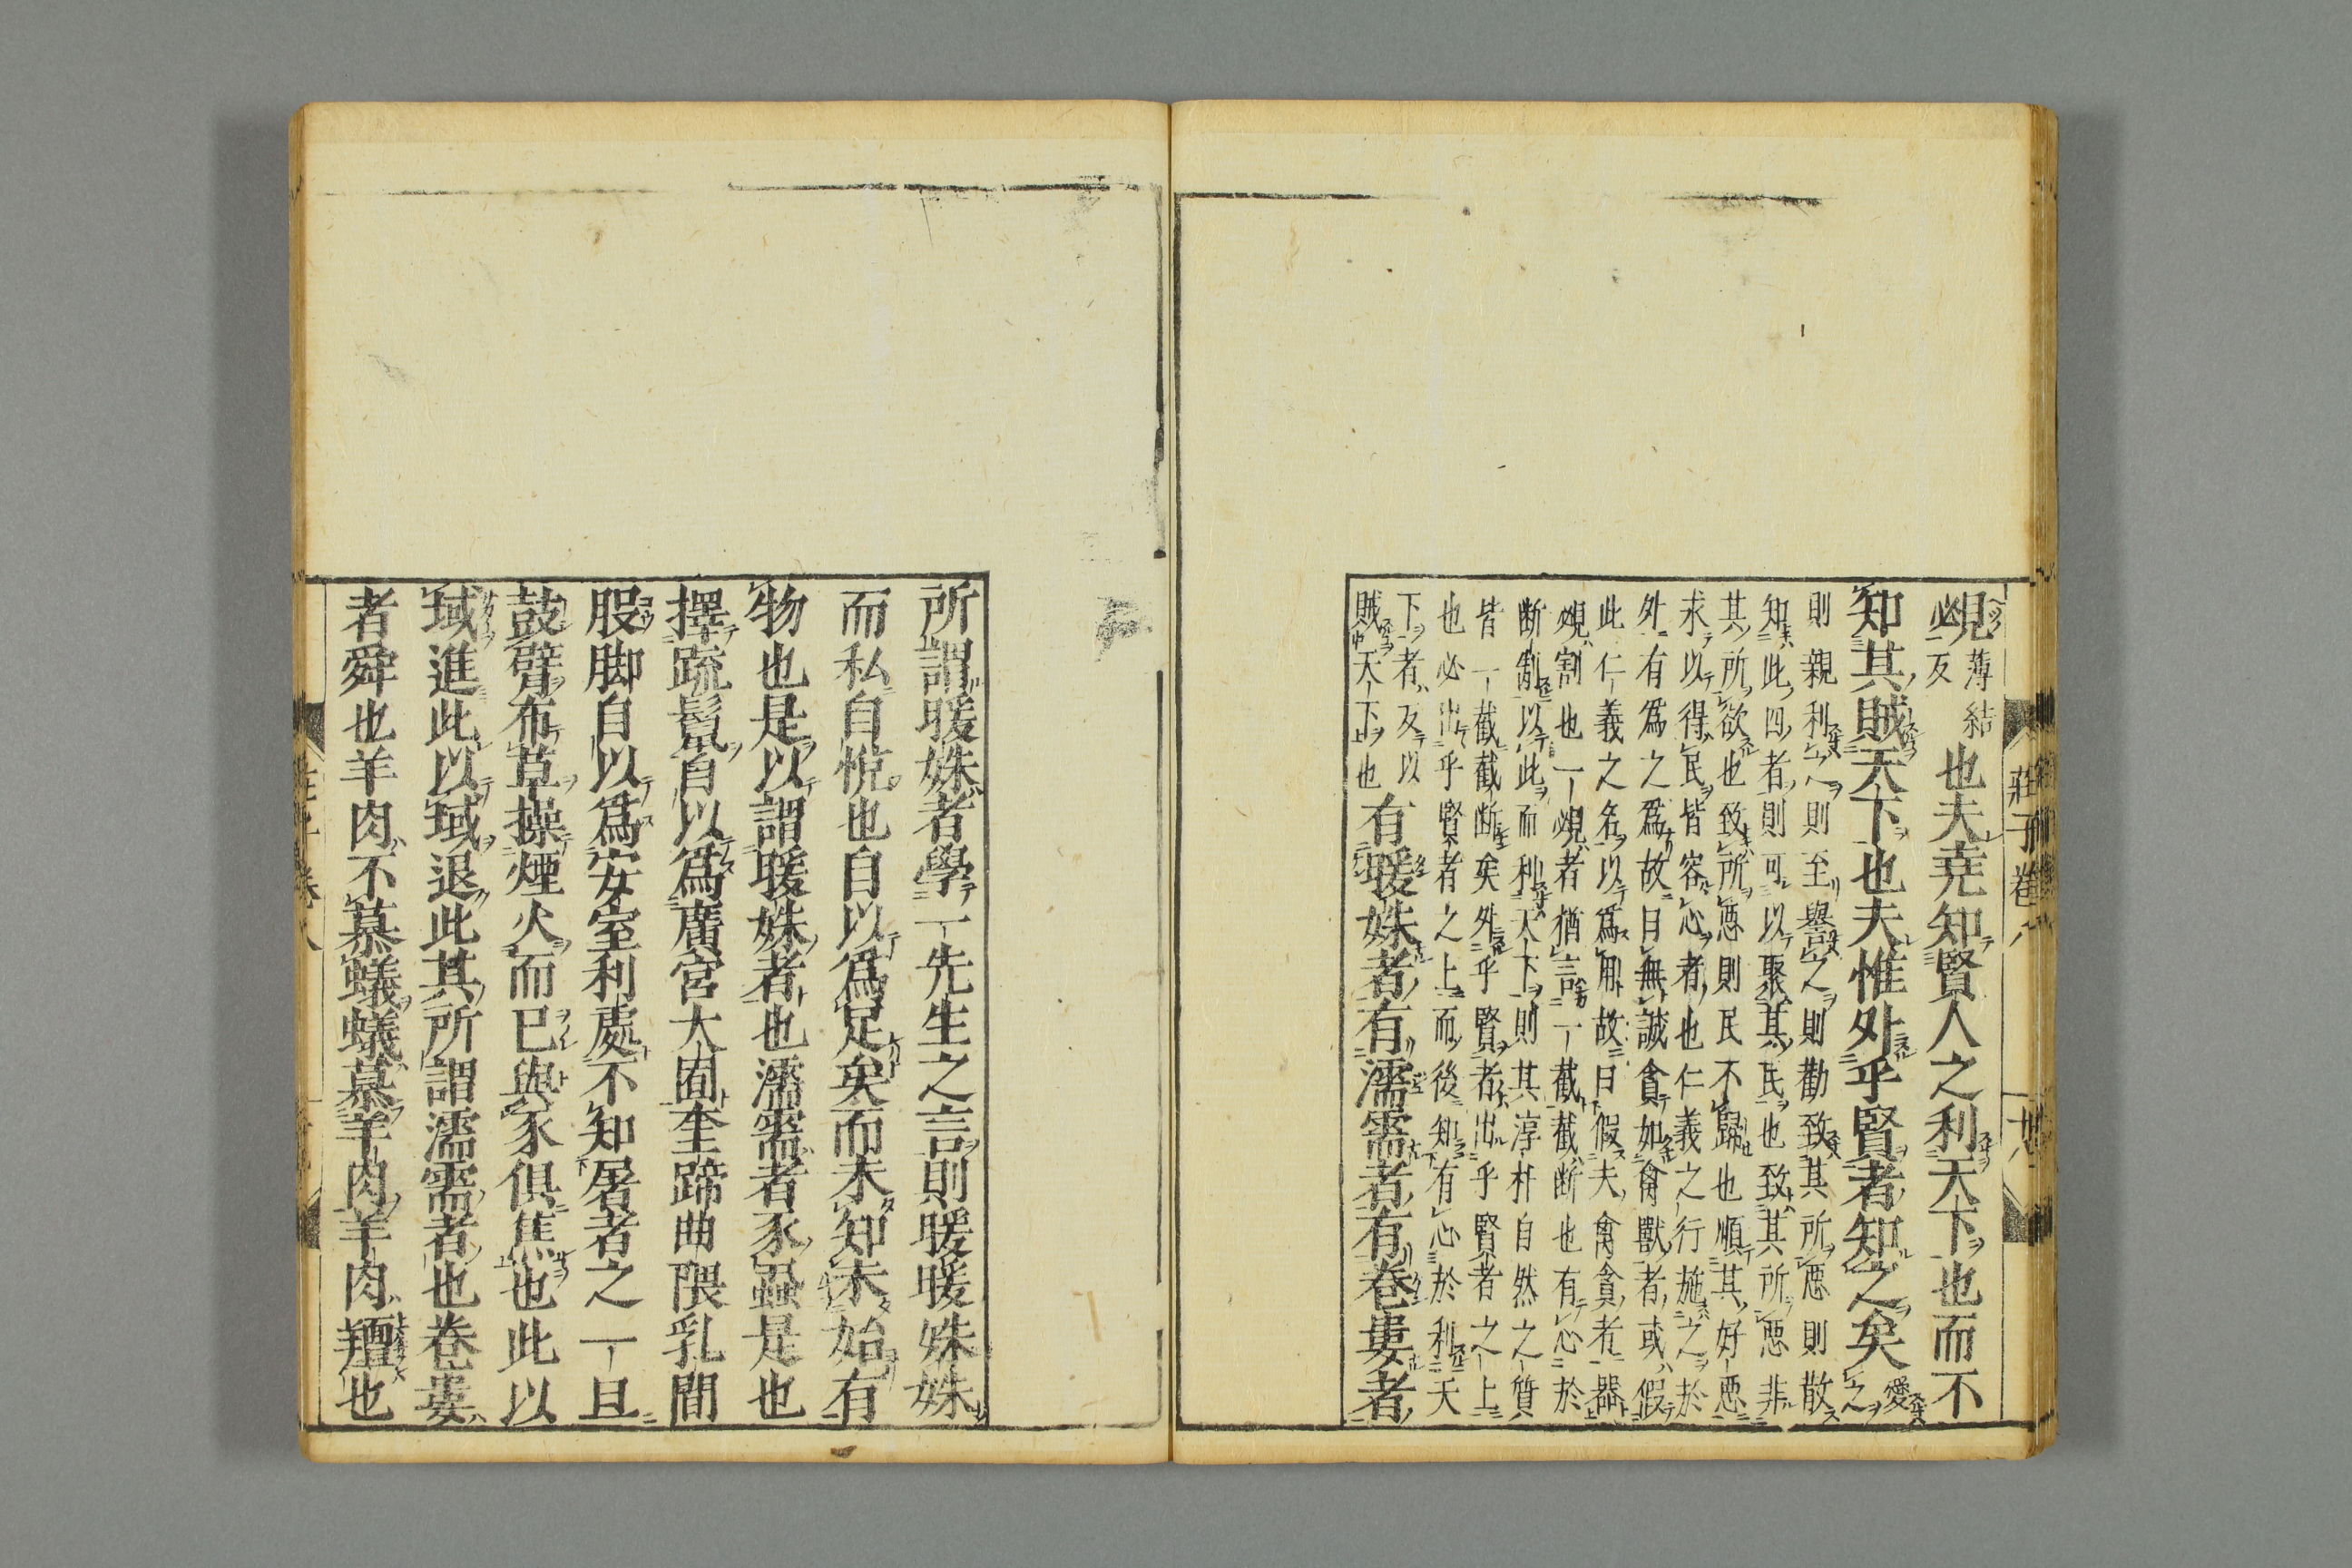 莊子卷八
覕薄結反也夫堯知賢人之利天下也而不
知其賊天下也夫惟外乎賢者知之矣愛之
則親利之則至譽之則勸致其所悪則散
知此四者則可以聚其民也致其所悪非
其所欲也致所悪則民不歸也順其好悪
求以得民皆容心者也仁義之行施之於
外有爲之爲故曰無誠貪如禽獸者或假
此仁義之名以爲用故曰假夫禽貪者器
覕割也一覕者猶言一截截断也有心於
断割以此而利天下則其淳朴自然之質
皆一截截断矣外乎賢者出乎賢者之上
也必出乎賢者之上而後知有心於利天
下者反以
賊天下也有暖姝者有濡需者有卷婁者
所謂暖姝者學一先生之言則暖暖姝姝
而私自悅也自以爲足矣而未知未始有
物也是以謂暖姝者也濡需者豕蝨是也
擇疏鬣自以爲廣宮大囿奎蹄曲隈乳間
股脚自以爲安室利處不知屠者之一旦
鼓臂布草操煙火而已與豕俱焦也此以
域進此以域退此其所謂濡需者也卷婁
者舜也羊肉不慕蟻蟻慕羊肉羊肉羶也
莊子卷八